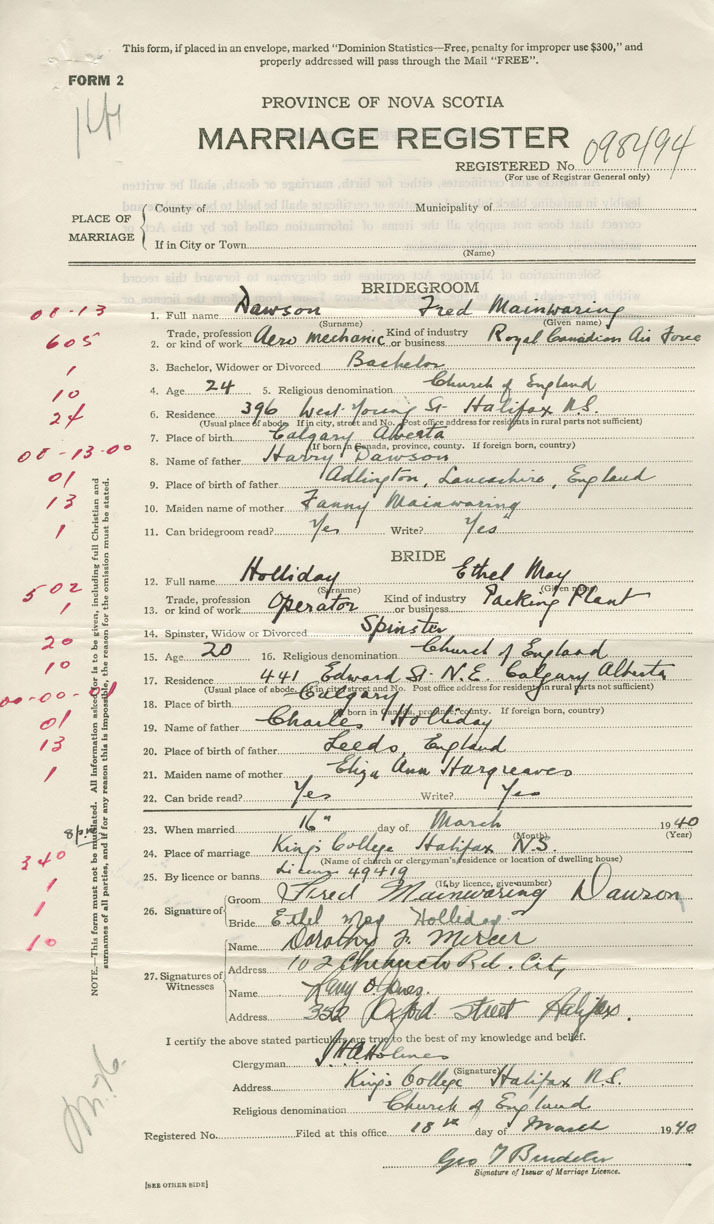 This form, if placed in an envelope, marked "Dominion Statistics—Free, penalty for improper use $300," and
properly addressed will pass through the Mail "FREE".
FORM 2
PROVINCE OF NOVA SCOTIA
MARRIAGE REGISTER
REGISTERED No. 098494
(For use of Registrar General only)
PLACE OF MARRIAGE
County of Municipality of
If in City or Town
(Name)
BRIDEGROOM
08-13
1. Full name Dawson Fred Mainwaring
(Surname) (Given name)
605
2. Trade, profession or kind of work Aero Mechanic Kind of industry or business Royal Canadian Air Force
1
3. Bachelor, Widower or Divorced Bachelor
10
4. Age 24 5. Religious denomination Church of England
24
6. Residence 396 West Young St Halifax N.S.
(Usual place of abode. If in city, street and No. Post office address for residents in rural parts not sufficient)
7. Place of birth Calgary Alberta
(If born in Canada, province, county. If foreign born, country)
08-13-00
8. Name of father Harry Dawson
01
9. Place of birth of father Adlington, Lancashire, England
13
10. Maiden name of mother Fanny Mainwaring
1
11. Can bridegroom read? Yes Write? Yes
BRIDE
12. Full name Holliday Ethel May
(Surname) (Given name)
502
1
13. Trade, profession or kind of work Operator Kind of industry or business Packing Plant
14. Spinster, Widow or Divorced Spinster
20
15. Age 20 16. Religious denomination Church of England
10
17. Residence 441 Edward St. N.E. Calgary Alberta
(Usual place of abode. If in city street and No. Post office address for residents in rural parts not sufficient)
18. Place of birth Calgary
(If born in Canada, province, county. If foreign born, country)
01
19. Name of father Charles Holliday
13
20. Place of birth of father Leeds, England
1
21. Maiden name of mother Eliza Ann Hargreaves
22. Can bride read? Yes Write? Yes
23. When married 16" day of March 1940
(Month) (Year)
340
24. Place of marriage King's College Halifax N.S.
(Name of church or clergyman's residence or location of dwelling house)
1
25. By licence or banns License 49419
(If by licence, give number)
1
26. Signature of
Groom Fred Mainwaring Dawson
Bride Ethel May Holliday
10
27. Signatures of Witnesses
Name Dorothy F. Mercer
Address 102 Chebucto Rd. City
Name
Address Oxford Street Halifax.
I certify the above stated particulars are true to the best of my knowledge and belief.
Clergyman Holmes
(Signature)
Address King's College Halifax N.S.
Religious denomination Church of England
Registered No. Filed at this office 18th day of March 1940
Geo T
Signature of Issuer of Marriage Licence.
[SEE OTHER SIDE]
NOTE.—This form must not be mutilated. All information asked for is to be given, including full Christian and
surnames of all parties, and if for any reason this is impossible, the reason for the omission must be stated.